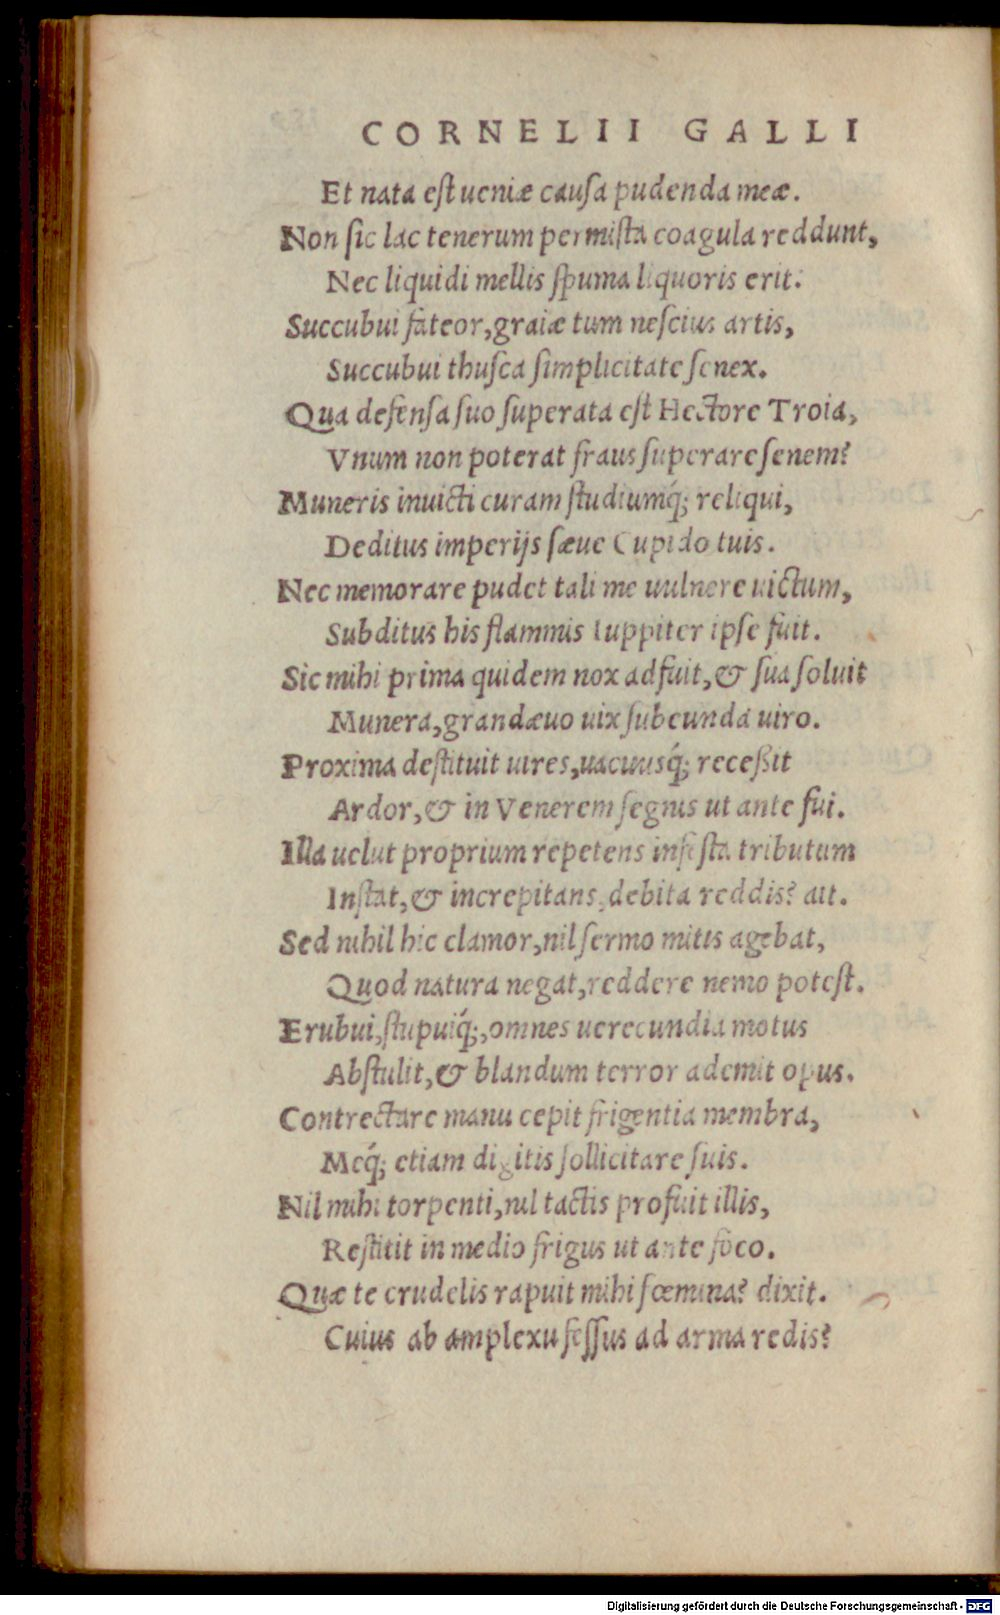 CORNELII GALLI
Et nata eſt ueniæ cauſa pudenda meæ.
Non ſic lac tenerum permiſta coagula reddunt,
Nec liquidi mellis ſpuma liquoris erit:
Succubui fateor, graiæ tum neſcius artis,
Succubui thuſca ſimplicitate ſenex.
Qua defenſa ſuo ſuperata eſt Hectore Troia,
Vnum non poterat fraus ſuperare ſenem?
Muneris inuicti curam ſtudiumq́; reliqui,
Deditus imperijs ſæue Cupido tuis.
Nec memorare pudet tali me uulnere uictum,
Subditus his flammis Iuppiter ipſe fuit.
Sic mihi prima quidem nox adfuit, & ſua ſoluit
Munera, grandæuo uix ſubeunda uiro.
Proxima deſtituit uires, uacuusq́; receßit
Ardor, & in Venerem ſegnis ut ante fui.
Illa uelut proprium repetens infeſta tributum
Inſtat, & increpitans, debita reddis? ait.
Sed nihil hic clamor, nil ſermo mitis agebat,
Quod natura negat, reddere nemo poteſt.
Erubui, ſtupuiq́;, omnes uerecundia motus
Abſtulit, & blandum terror ademit opus.
Contrectare manu cepit frigentia membra,
Meq́; etiam digitis ſollicitare ſuis.
Nil mihi torpenti, nil tactis profuit illis,
Reſtitit in medio frigus ut ante foco.
Quæ te crudelis rapuit mihi fœmina? dixit.
Cuius ab amplexu feſſus ad arma redis?
Digitalisierung gefördert durch die Deutsche Forschungsgemeinschaft - DFG